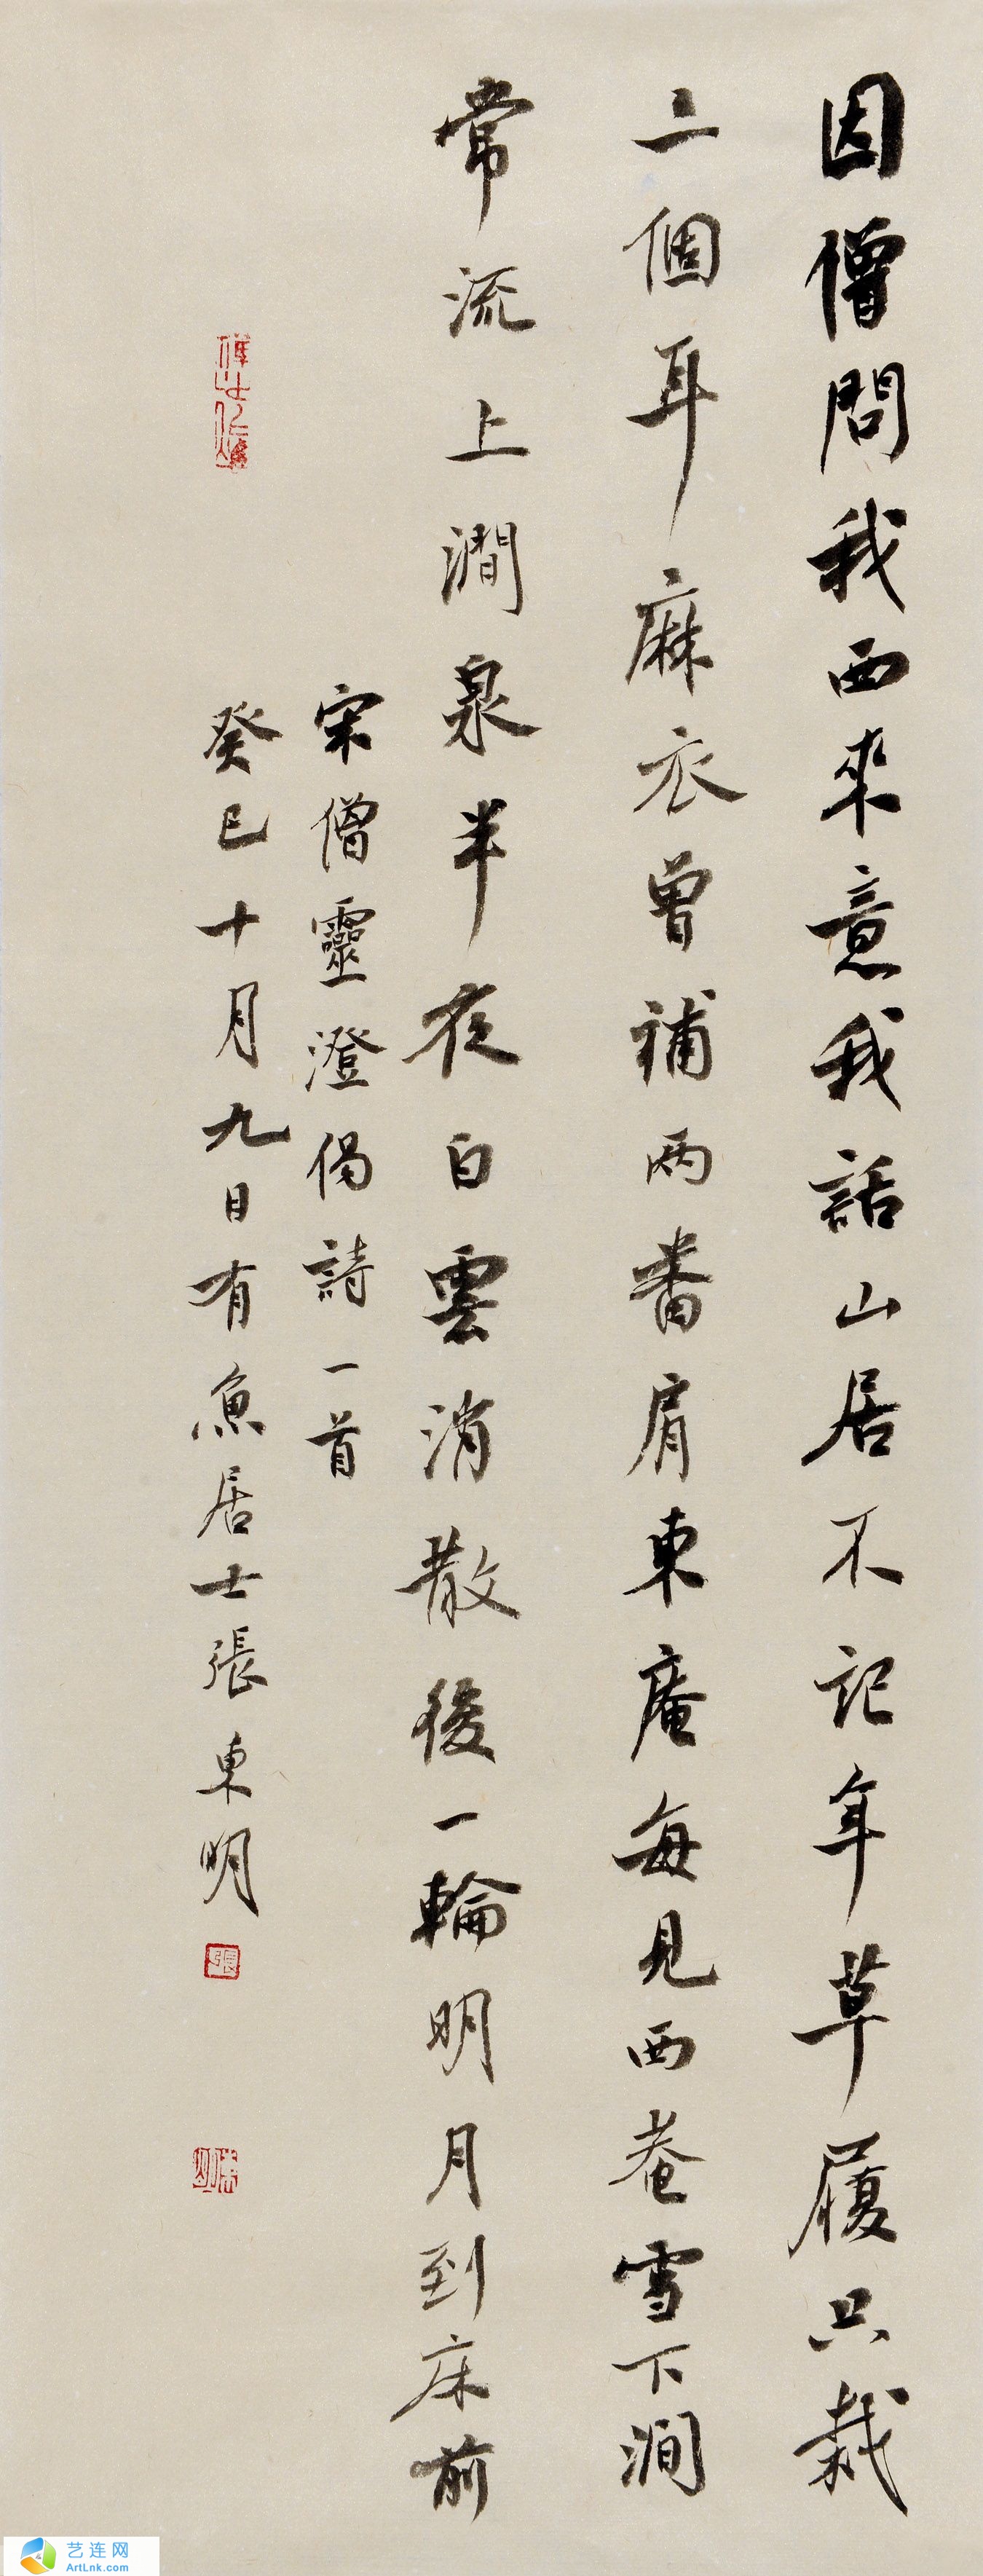 因僧問我西來意我話山居不記年草履只栽
三個耳麻衣曾補两番肩東庵每見西菴雪下澗
常流上澗泉半夜白雲消散後一輪明月到床前
宋僧靈澄偈詩一首
癸巳十月九日有魚居士張東明
張
艺连网
ArtLnk.com